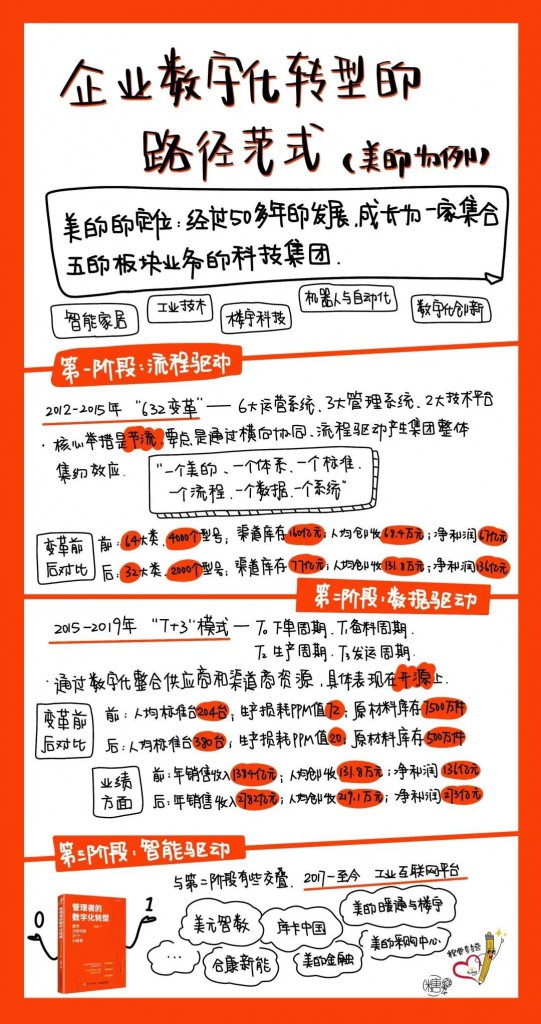 企业数字化转型的
路径范式（美的为例）
美的的定位：经过50多年的发展，成长为一家集合
五的板块业务的科技集团.
智能家居
工业技术
楼宇科技
机器人与自动化
数字化创新
第一阶段：流程驱动
2012-2015年 “632变革” — 6大运营系统、3大管理系统、2大技术平台
· 核心举措是节流，要点是通过横向协同、流程驱动产生集团整体
集约效应.
“一个美的、一个体系、一个标准、
一个流程、一个数据、一个系统”
变革前
后对比
前：64大类、4000个型号；渠道库存160亿元；人均创收68.4万元；净利润67亿元
后：32大类、2000个型号；渠道库存77亿元；人均创收131.8万元；净利润136亿元
第二阶段：数据驱动
2015-2019年 “T+3”模式 — T0 下单周期、T1备料周期.
T2 生产周期、T3发运周期.
· 通过数字化整合供应商和渠道商资源，具体表现在开源上.
变革前
后对比
前：人均标准台204台；生产损耗PPM值72；原材料库存1500万件
后：人均标准台380台；生产损耗PPM值20；原材料库存500万件
业绩
方面
前：年销售收入1384亿元；人均创收131.8万元；净利润136亿元
后：年销售收入2782亿元；人均创收219.1万元；净利润273亿元
第三阶段：智能驱动
与第二阶段有些交叠. 2017-至今 工业互联网平台
美元智数
库卡中国
美的暖通与楼宇
...
合康新能
美的金融
美的采购中心
0
1
管理者的
数字化转型